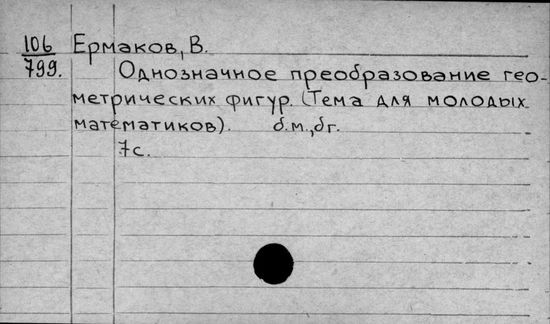 106 Ермаков, В.
799. Однозначное преобразование гео-
метрических фигур. (Тема для молодых
математиков). б.м., бг.
7с.